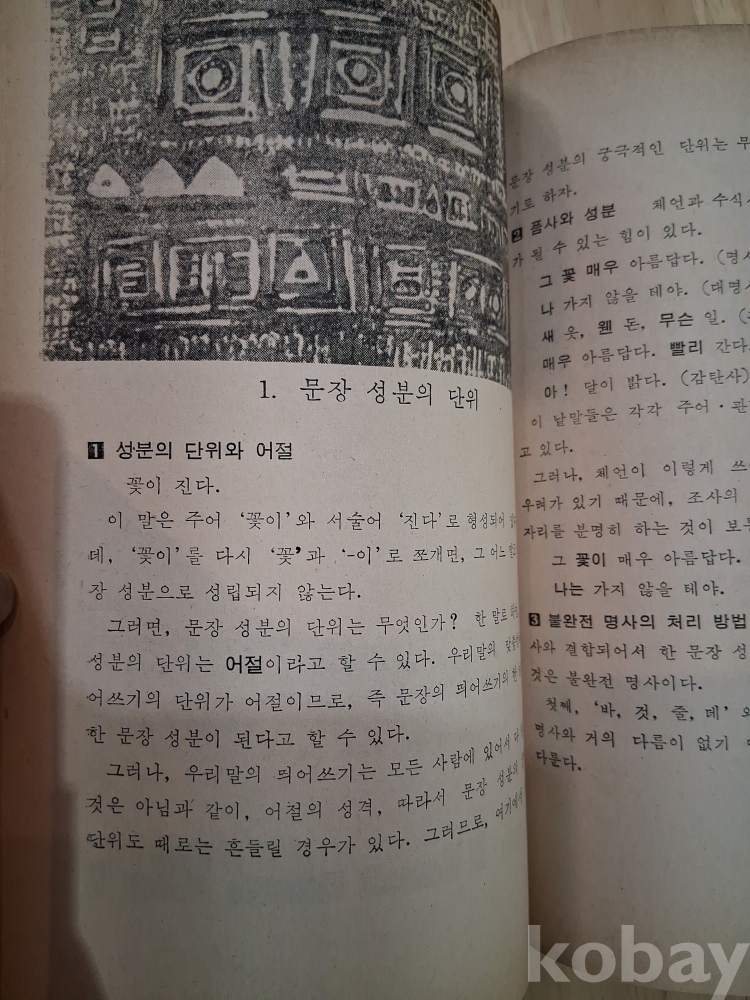 1. 문장 성분의 단위
1 성분의 단위와 어절
꽃이 진다.
이 말은 주어 ‘꽃이’와 서술어 ‘진다’로 형성되어
데, ‘꽃이’를 다시 ‘꽃’과 ‘-이’로 쪼개면, 그 어느
장 성분으로 성립되지 않는다.
그러면, 문장 성분의 단위는 무엇인가? 한 말로
성분의 단위는 어절이라고 할 수 있다. 우리말의
어쓰기의 단위가 어절이므로, 즉 문장의 띄어쓰기의 한
한 문장 성분이 된다고 할 수 있다.
그러나, 우리말의 띄어쓰기는 모든 사람에 있어서 다
것은 아님과 같이, 어절의 성격, 따라서 문장 성분의
단위도 때로는 흔들릴 경우가 있다. 그러므로, 여기에서
문장 성분의 궁극적인 단위는
기로 하자.
2 품사와 성분 체언과 수식
가 될 수 있는 힘이 있다.
그 꽃 매우 아름답다. (명사
나 가지 않을 테야. (대명사
새 옷, 웬 돈, 무슨 일.
매우 아름답다. 빨리 간다.
아! 달이 밝다. (감탄사)
이 낱말들은 각각 주어·관
고 있다.
그러나, 체언이 이렇게 쓰
우려가 있기 때문에, 조사의
자리를 분명히 하는 것이 보
그 꽃이 매우 아름답다.
나는 가지 않을 테야.
3 불완전 명사의 처리 방법
사와 결합되어서 한 문장 성
것은 불완전 명사이다.
첫째, ‘바, 것, 줄, 데’와
명사와 거의 다름이 없기
다룬다.
kobay